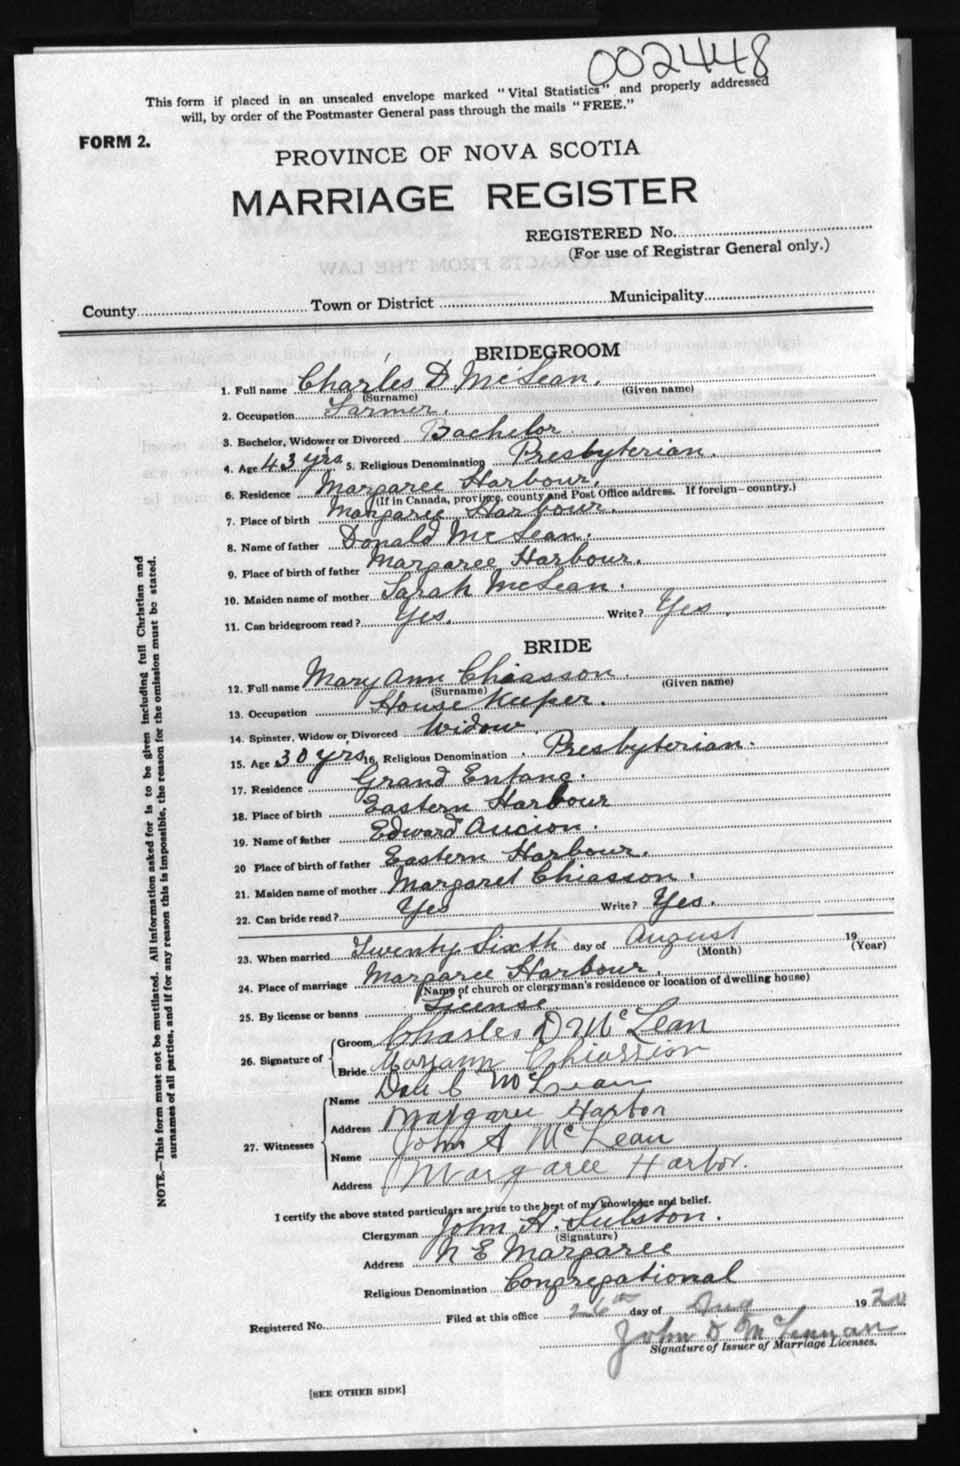 002448
This form if placed in an unsealed envelope marked "Vital Statistics" and properly addressed
will, by order of the Postmaster General pass through the mails "FREE."
FORM 2.
PROVINCE OF NOVA SCOTIA
MARRIAGE REGISTER
REGISTERED No.
(For use of Registrar General only.)
County Town or District Municipality
BRIDEGROOM
1. Full name Charles D McLean.
(Surname) (Given name)
2. Occupation Farmer.
3. Bachelor, Widower or Divorced Bachelor.
4. Age 43 yrs 5. Religious Denomination Presbyterian.
6. Residence Margaree Harbour.
(If in Canada, province, county and Post Office address. If foreign—country.)
7. Place of birth Margaree Harbour.
8. Name of father Donald McLean.
9. Place of birth of father Margaree Harbour.
10. Maiden name of mother Sarah McLean.
11. Can bridegroom read? Yes. Write? Yes.
BRIDE
12. Full name Mary Ann Chiasson.
(Surname) (Given name)
13. Occupation House Keeper.
14. Spinster, Widow or Divorced Widow.
15. Age 30 yrs 16. Religious Denomination Presbyterian.
17. Residence Grand Entang.
18. Place of birth Eastern Harbour
19. Name of father Edward Aucion.
20 Place of birth of father Eastern Harbour.
21. Maiden name of mother Margaret Chiasson.
22. Can bride read? Yes Write? Yes.
23. When married Twenty Sixth day of August 19
(Month) (Year)
24. Place of marriage Margaree Harbour.
(Name of church or clergyman's residence or location of dwelling house)
25. By license or banns License
26. Signature of Groom Charles D McLean
Bride Maryann Chiassion
27. Witnesses
Name Dan C McLean
Address Margaree Harbor
Name John A McLean
Address Margaree Harbor.
I certify the above stated particulars are true to the best of my knowledge and belief.
Clergyman John H.
(Signature)
Address N E Margaree
Religious Denomination Congregational
Registered No. Filed at this office 26th day of Aug 1920
John D McLennan
Signature of Issuer of Marriage Licenses.
[SEE OTHER SIDE]
NOTE.—This form must not be mutilated. All information asked for is to be given including full Christian and
surnames of all parties, and if for any reason this is impossible, the reason for the omission must be stated.